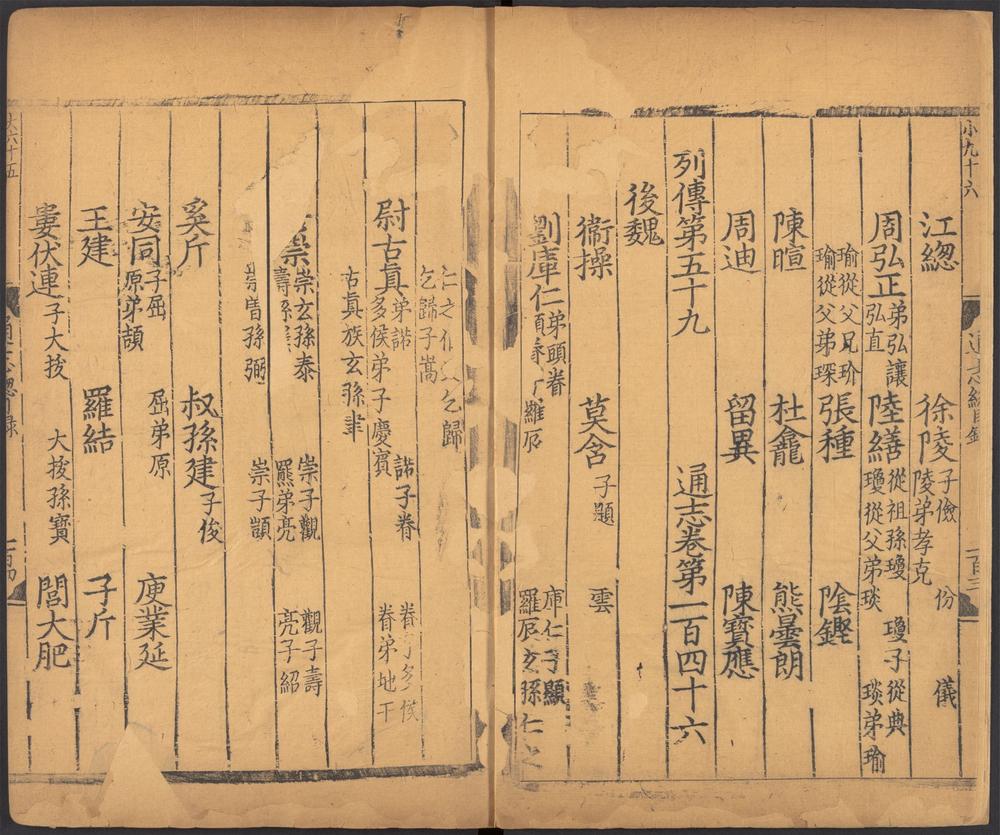 小九十六
江緫 徐陵 子儉 陵弟孝克 份 儀
周弘正 弟弘讓 弘直 陸繕 從祖孫瓊 瓊從父弟琰 瓊子從典 琰弟瑜
瑜從父兄玠 瑜從父弟琛 張種 陰鏗
陳暄 杜龕 熊曇朗
周迪 留異 陳寶應
列傳第五十九 通志卷第一百四十六
後魏
衞操 莫含 子題 雲
劉庫仁 弟頭眷 羅辰 庫仁子顯 羅辰玄孫仁之
乞歸 乞歸子嵩
尉古真 弟諾 多侯弟子慶賓 諾子眷 眷子多侯 眷弟地干
古真族玄孫聿
崇 崇玄孫泰 壽孫 崇子觀 羆弟亮 觀子壽 亮子紹
曾孫弼 崇子顗
奚斤 叔孫建 子俊
安同 子屈 原弟頡 屈弟原 庾業延
王建 羅結 子斤
婁伏連 子大拔 大拔孫寶 閭大肥